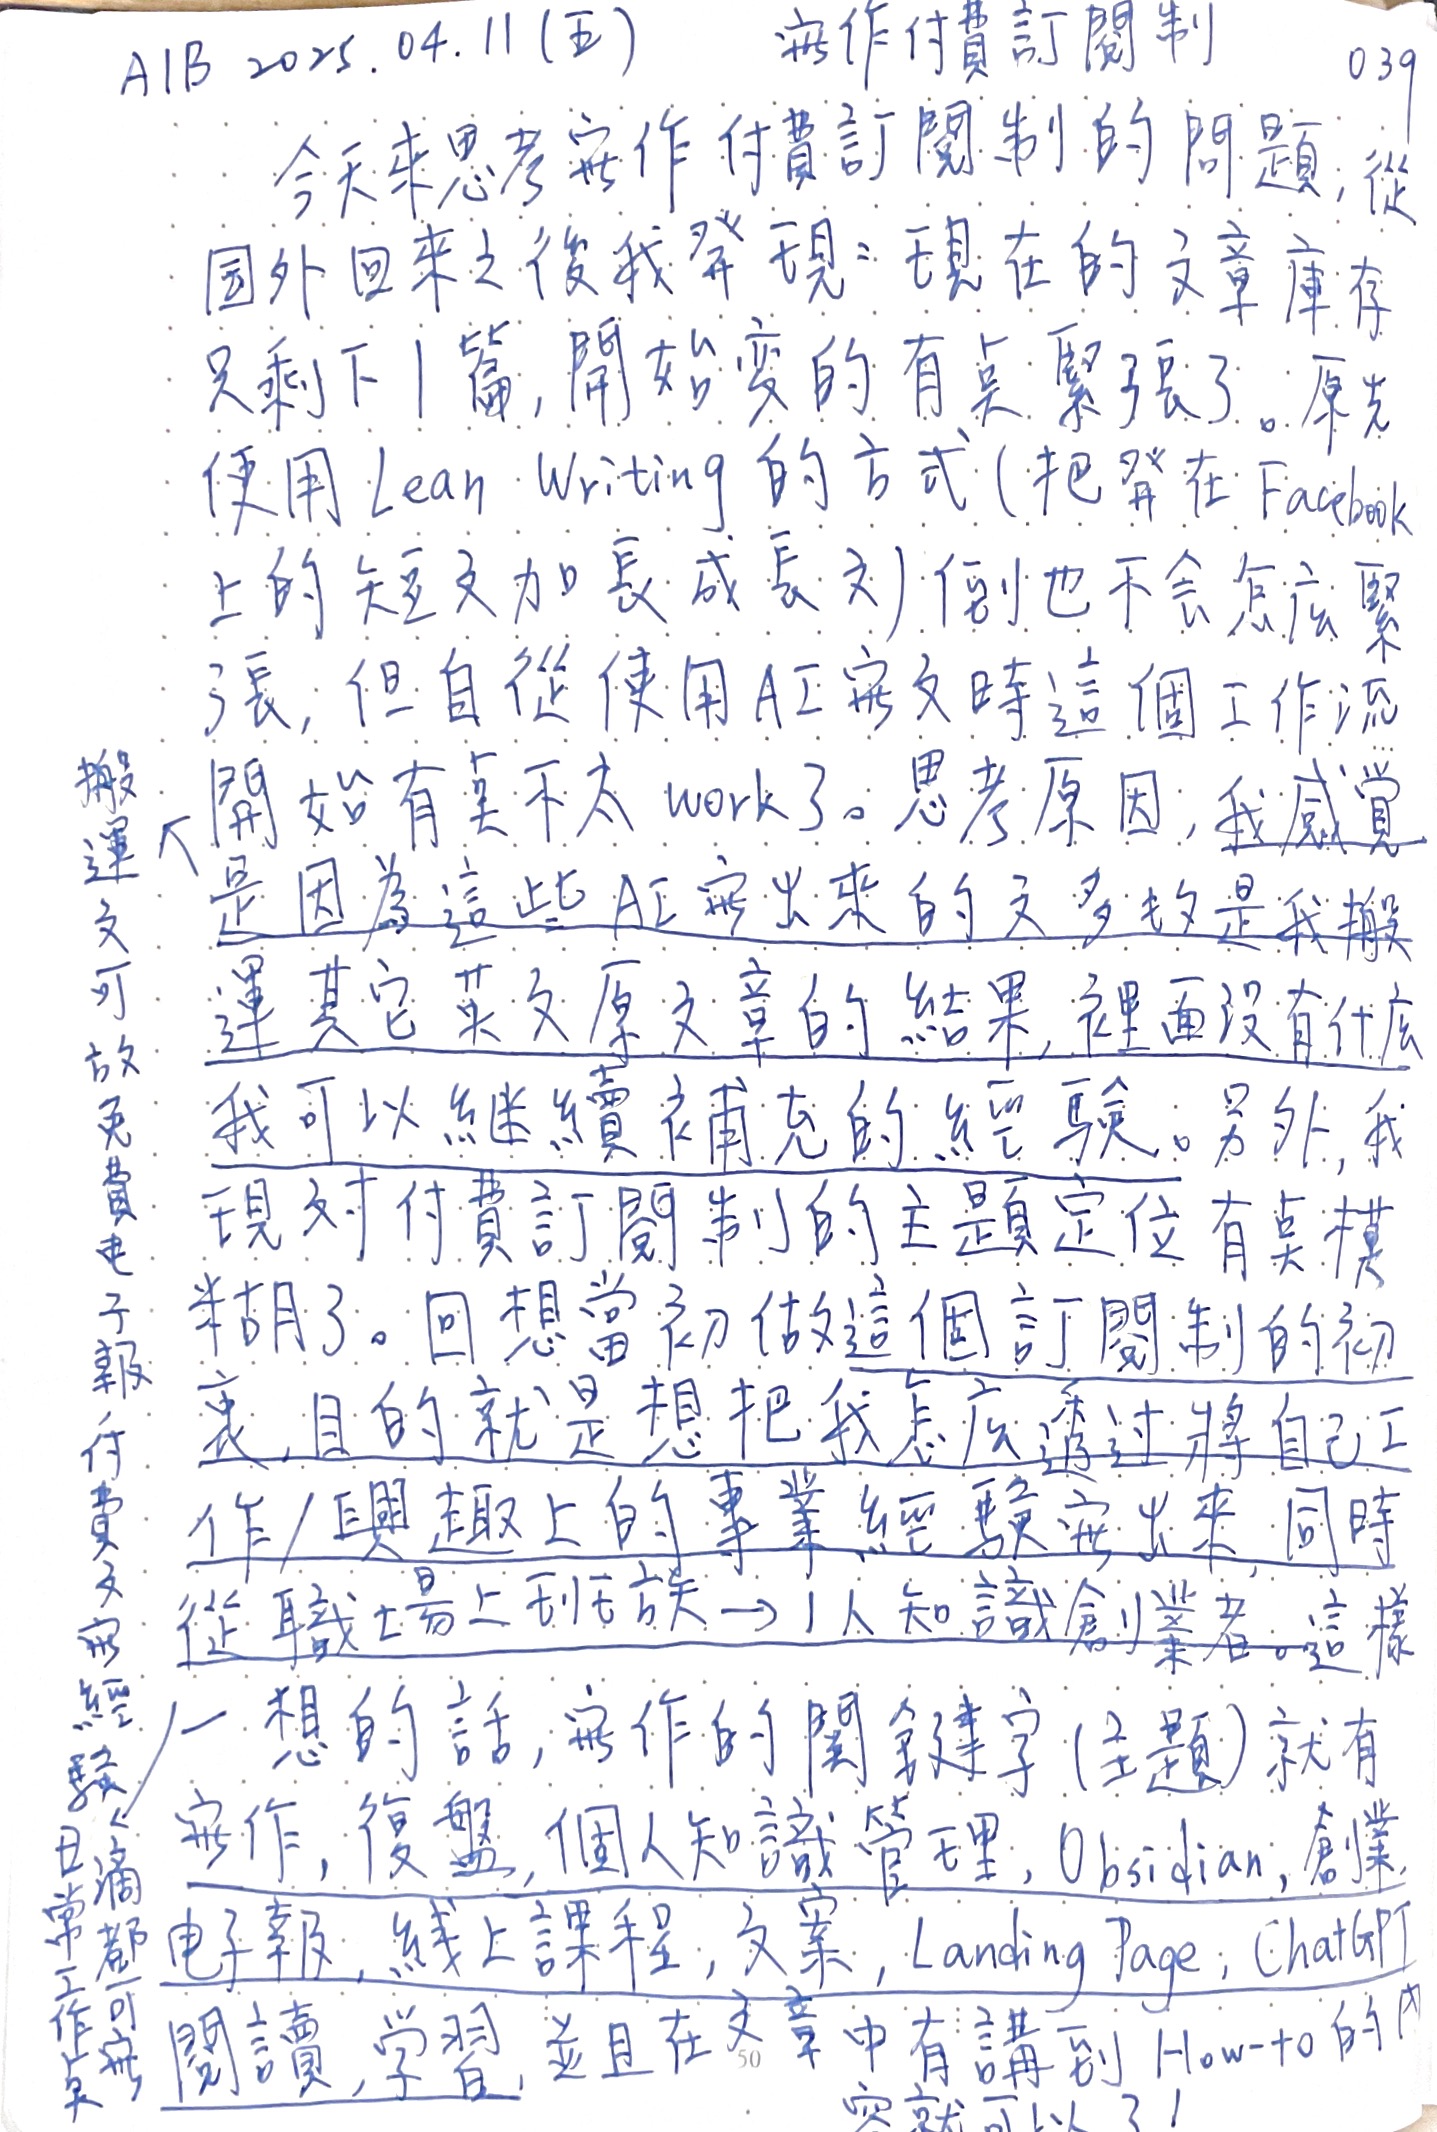 A1B 2025.04.11(五) 寫作付費訂閱制 039
今天來思考寫作付費訂閱制的問題,從
国外回來之後我發現:現在的文章庫存
只剩下1篇,開始變的有点緊張了。原先
使用Lean Writing的方式(把發在Facebook
上的短文加長成長文)倒也不会怎庅緊
張,但自從使用AI寫文時這個工作流
開始有点不太work了。思考原因,我感覺
是因為這些AI寫出來的文多數是我搬
運其它英文原文章的結果,裡面沒有什庅
我可以継續補充的經驗。另外,我
現对付費訂閱制的主題定位有点模
糊了。回想當初做這個訂閱制的初
衷,目的就是想把我怎庅透过將自己工
作/興趣上的專業經驗寫出來,同時
從職場上到 → 1人知識創業者。這樣
一想的話,寫作的関鍵字(主題)就有
寫作,復盤,個人知識管理,Obsidian,創業,
电子報,綫上課程,文案,Landing Page,ChatGPT
閱讀,学習,並且在文章中有講到How-to的内
容就可以了!
搬運文可放免費电子報付費文寫經驗
日常工作点滴都可寫
50